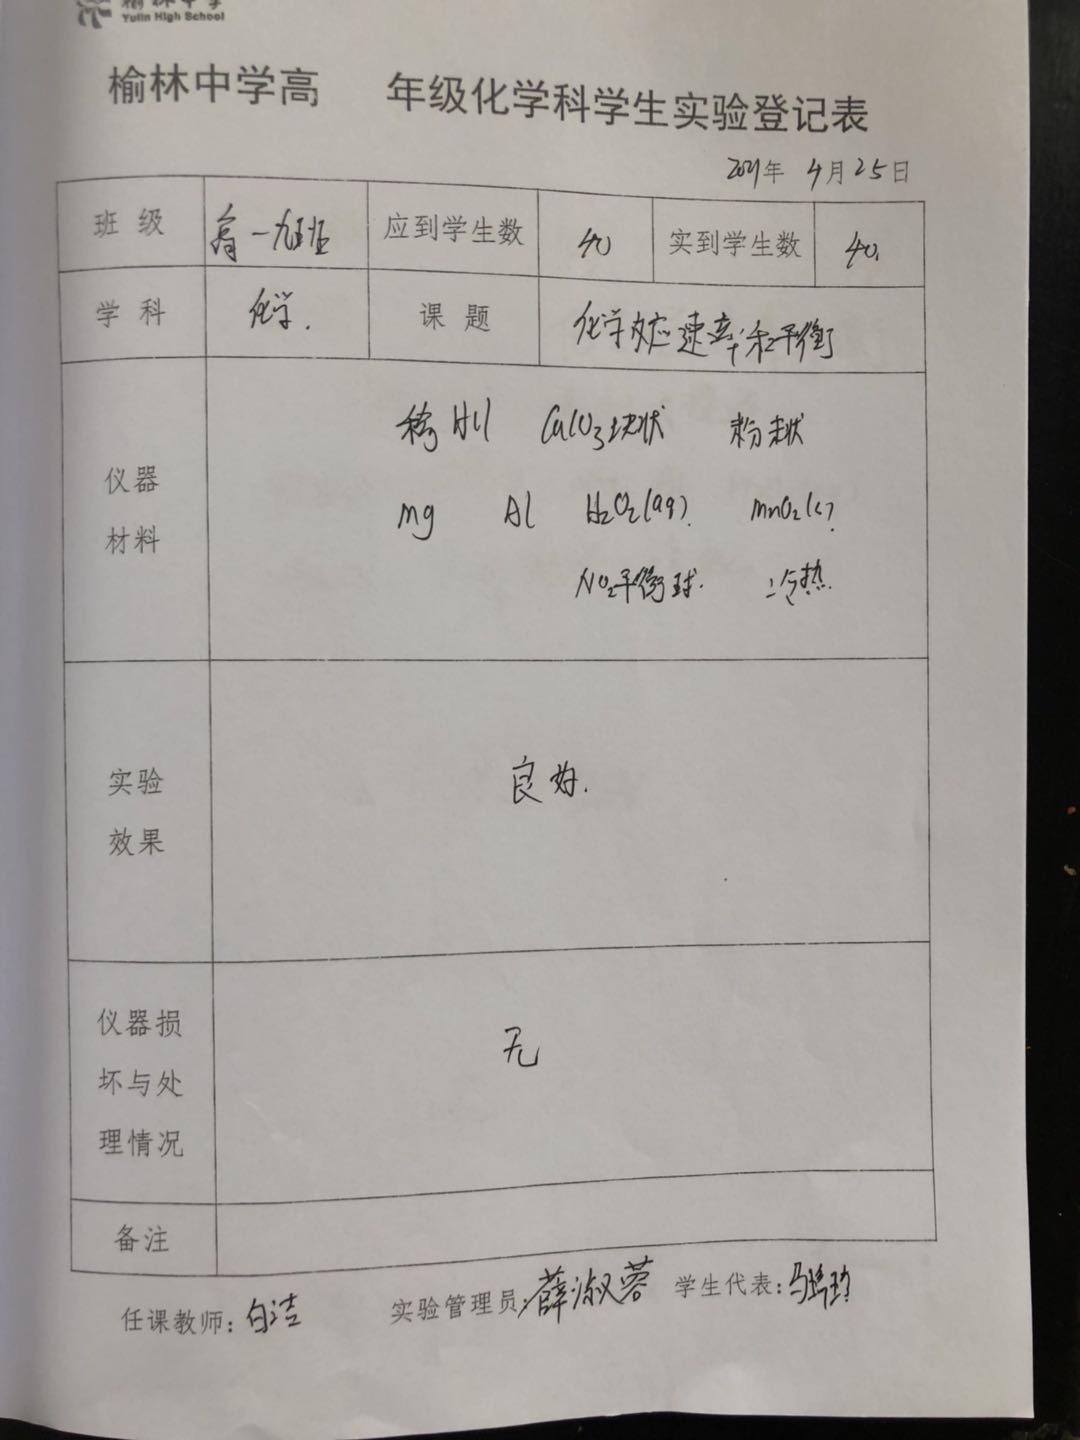 榆林中学
Yulin High School
榆林中学高 年级化学科学生实验登记表
2021年 4月25日
班级 高一九班 应到学生数 40 实到学生数 40.
学科 化学. 课题 化学反应速率和平衡
仪器
材料
稀HCl CaCO3块状 粉末状
Mg Al H2O2(aq). MnO2(s).
NO2平衡球. 冷热.
实验
效果
良好.
仪器损
坏与处
理情况
无
备注
任课教师:白洁 实验管理员:薛淑蓉 学生代表:马